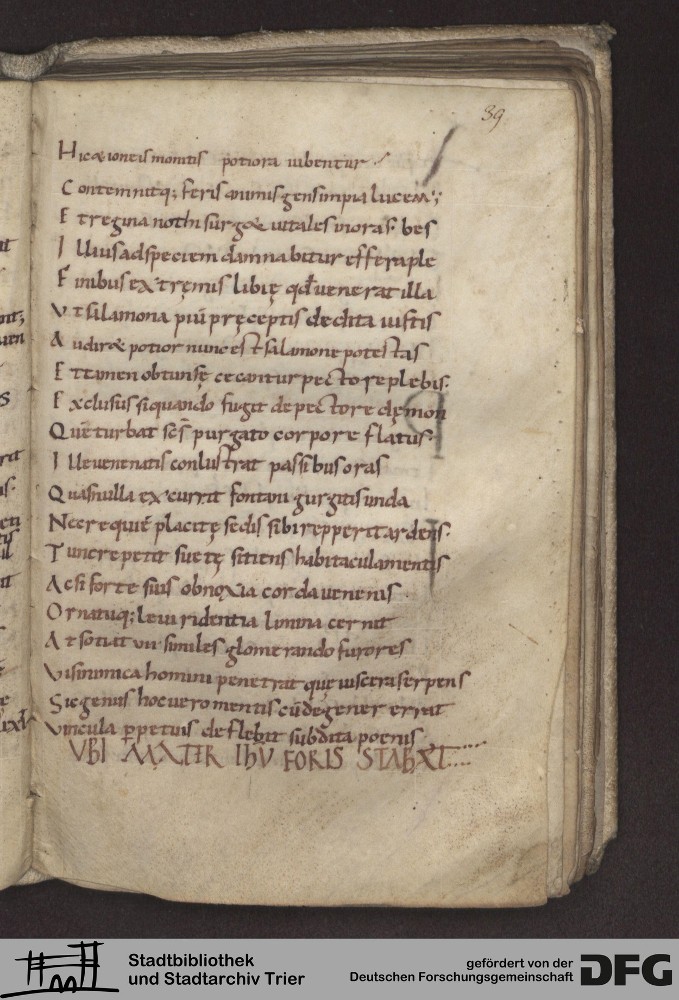 39
Hic & ionę monitis potiora iubentur
Contemnitq; feris animis gens impia lucem;
Et regina nothi surg& uitales
Illius ad speciem damnabitur effera ple bes
Finibus extręmis libię qđ uenerat illa
Vt salamona piū pręceptis dedita iustis
Audir& potior nunc est salamone potestas
Et tamen obtunsę cecantur pectore plebis.
Exclusus si quando fugit de pectore dęmon
Quē turbat scs purgato corpore flatus.
Ille uenenatis conlustrat passibus oras
Quas nulla excurrit fontani gurgitis unda
Nec requiē placitę sedis sibi repperit ardens.
Tunc repetit suetę sitiens habitacula mentis
Ac si forte suis obnoxia corda uenenis
Ornatuq; leui ridentia limina cernit
At sotiat similes glomerando furores
Vis inimica homini penetratque uiscera serpens
Sic genus hoc uero mentis cū degener errat
Vincula ppetuis deflebit subdita poenis
VBI MATER IHV FORIS STABAT
Stadtbibliothek
und Stadtarchiv Trier
gefördert von der
Deutschen Forschungsgemeinschaft
DFG